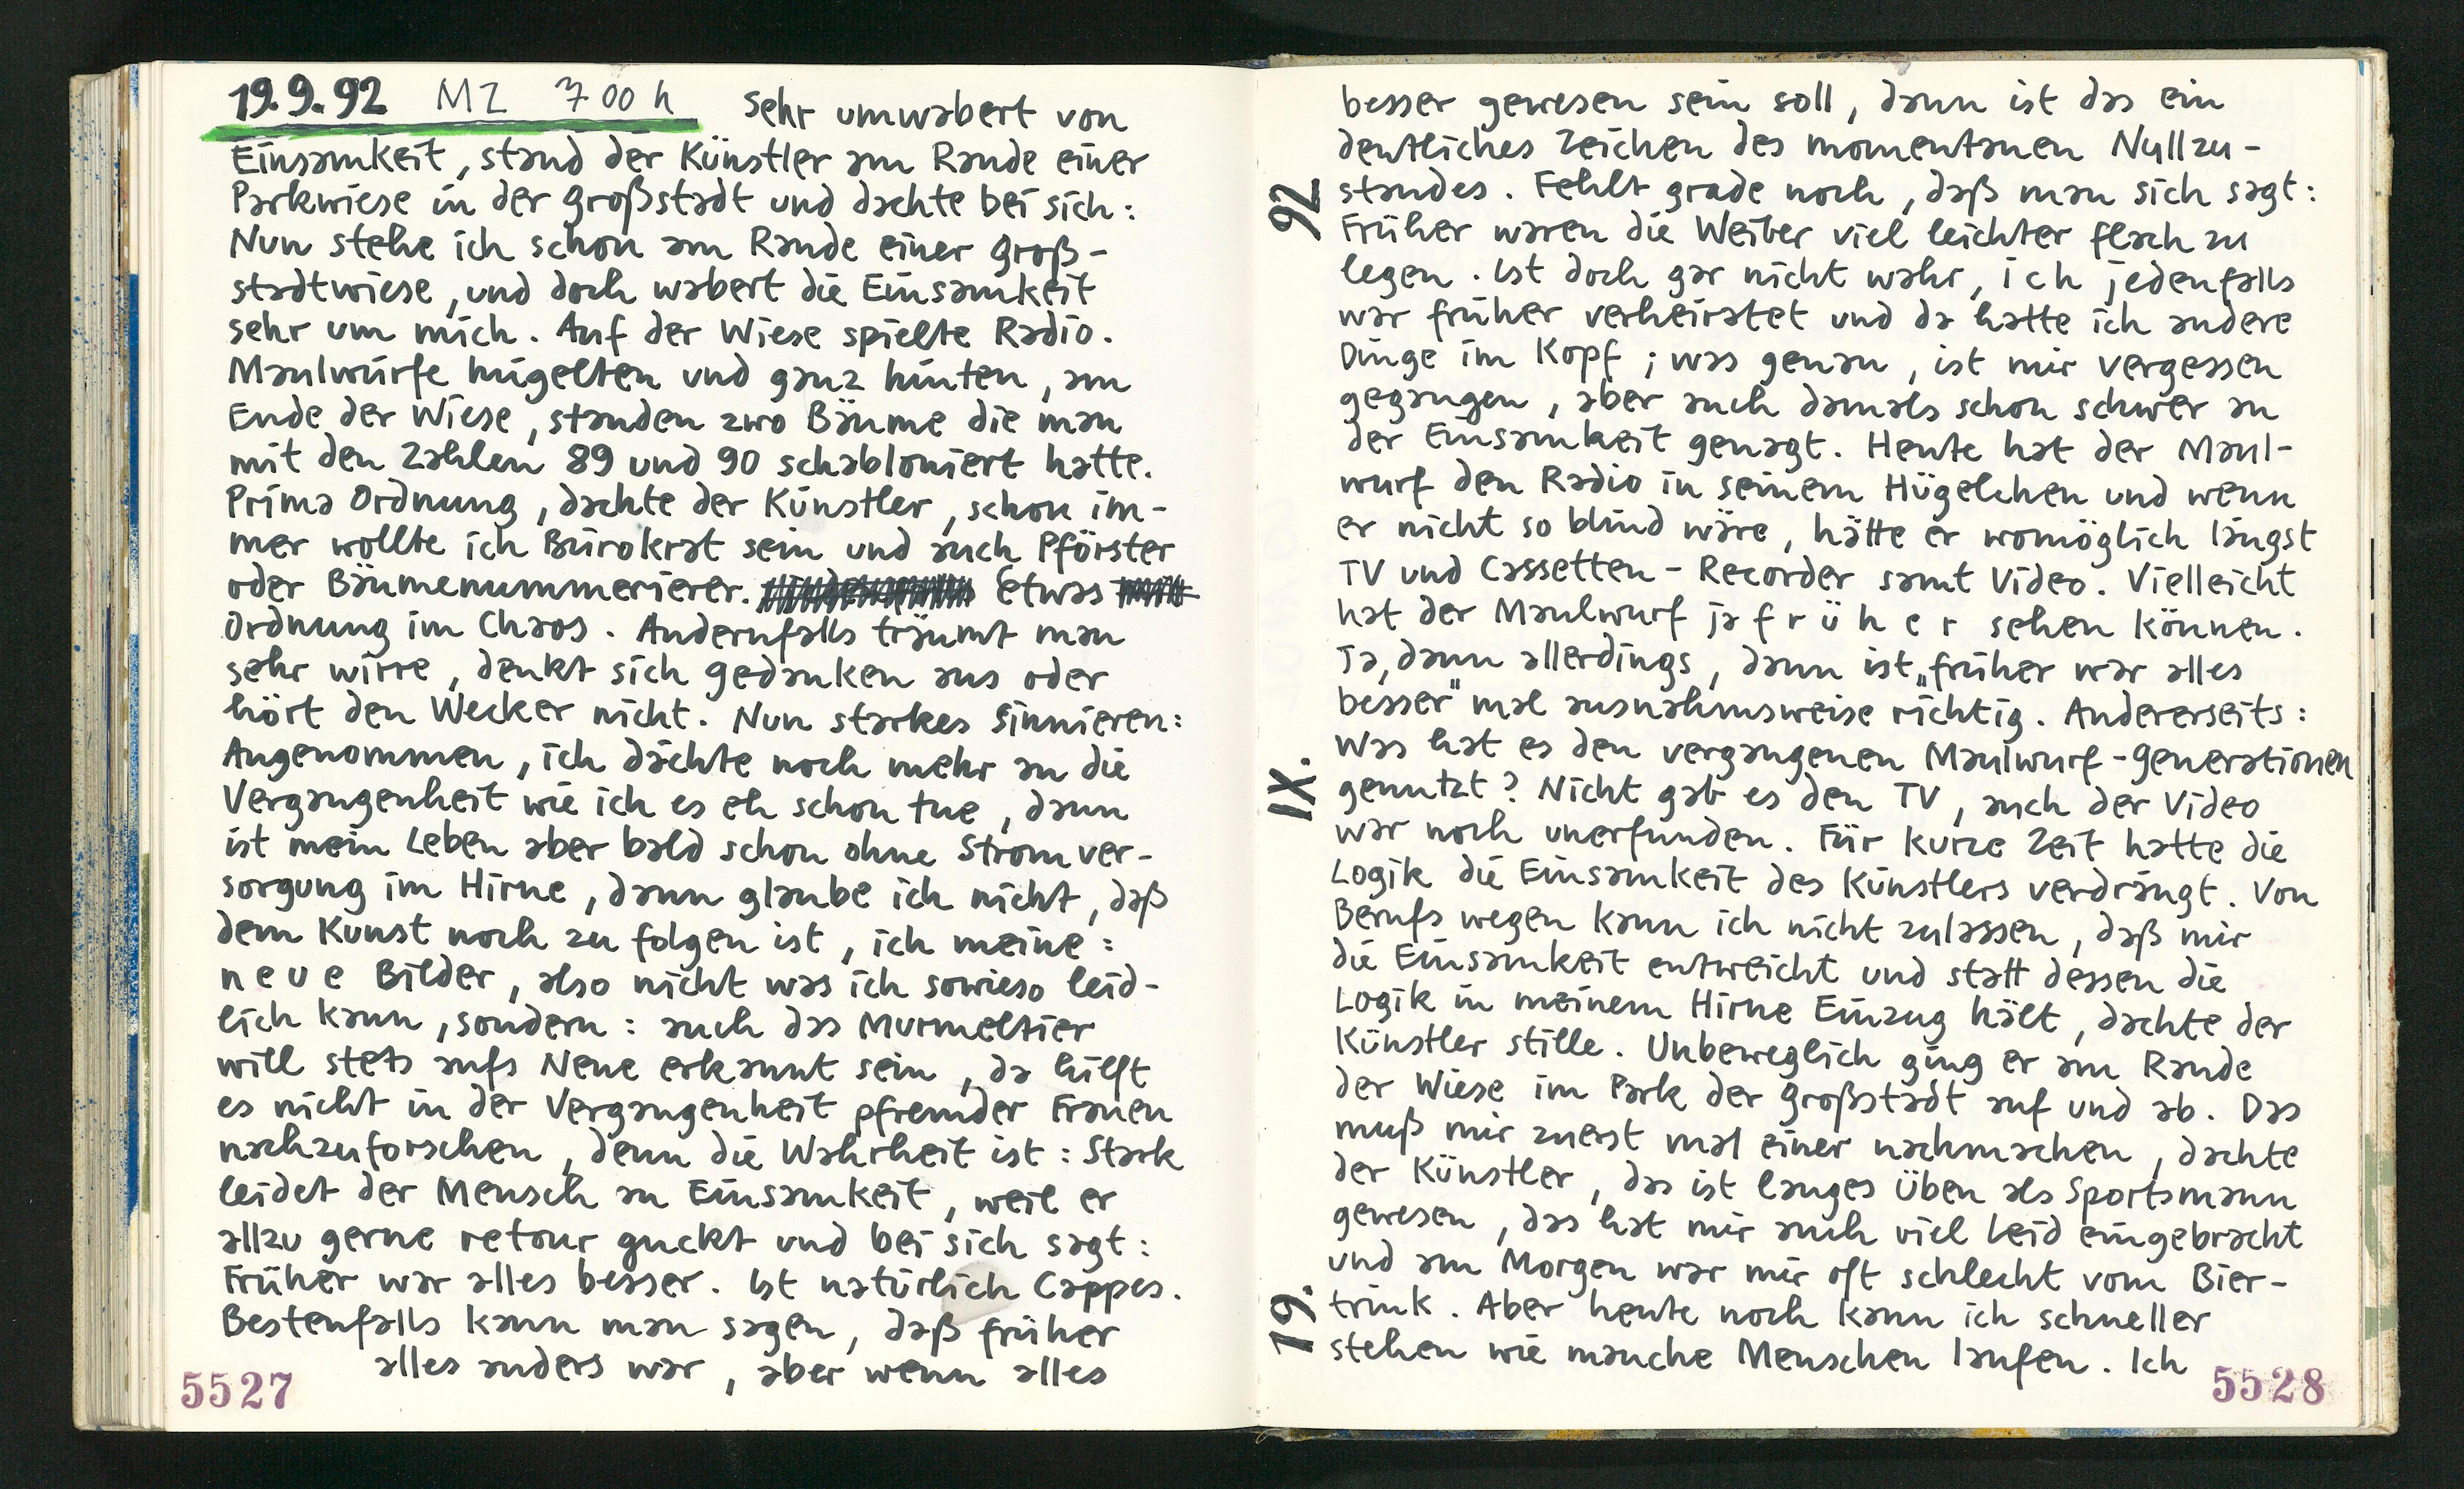 19.9.92 MZ 7 00 h sehr umwabert von
Einsamkeit, stand der Künstler am Rande einer
Parkwiese in der Großstadt und dachte bei sich:
Nun stehe ich schon am Rande einer Groß-
stadtwiese, und doch wabert die Einsamkeit
sehr um mich. Auf der Wiese spielte Radio.
Maulwürfe hügelten und ganz hinten, am
Ende der Wiese, standen zwo Bäume die man
mit den Zahlen 89 und 90 schabloniert hatte.
Prima Ordnung, dachte der Künstler, schon im-
mer wollte ich Bürokrat sein und auch Pförster
oder Bäumenummerierer. Etwas
Ordnung im Chaos. Andernfalls träumt man
sehr wirre, denkt sich Gedanken aus oder
hört den Wecker nicht. Nun starkes Sinnieren:
Angenommen, ich dächte noch mehr an die
Vergangenheit wie ich es eh schon tue, dann
ist mein Leben aber bald schon ohne Stromver-
sorgung im Hirne, dann glaube ich nicht, daß
dem Kunst noch zu folgen ist, ich meine:
neue Bilder, also nicht was ich sowieso leid-
lich kann, sondern: auch das Murmeltier
will stets aufs Neue erkannt sein, da hilft
es nicht in der Vergangenheit pfremder Frauen
nachzuforschen, denn die Wahrheit ist: Stark
leidet der Mensch an Einsamkeit, weil er
allzu gerne retour guckt und bei sich sagt:
Früher war alles besser. Ist natürlich Cappes.
Bestenfalls kann man sagen, daß früher
alles anders war, aber wenn alles
5527
besser gewesen sein soll, dann ist das ein
deutliches Zeichen des momentanen Nullzu-
standes. Fehlt grade noch, daß man sich sagt:
Früher waren die Weiber viel leichter flach zu
legen. Ist doch gar nicht wahr, ich jedenfalls
war früher verheiratet und da hatte ich andere
Dinge im Kopf; was genau, ist mir vergessen
gegangen, aber auch damals schon schwer an
der Einsamkeit genagt. Heute hat der Maul-
wurf den Radio in seinem Hügelchen und wenn
er nicht so blind wäre, hätte er womöglich längst
TV und Cassetten-Recorder samt Video. Vielleicht
hat der Maulwurf ja früher sehen können.
Ja, dann allerdings, dann ist „früher war alles
besser" mal ausnahmsweise richtig. Andererseits:
Was hat es den vergangenen Maulwurf-Generationen
genutzt? Nicht gab es den TV, auch der Video
war noch unerfunden. Für kurze Zeit hatte die
Logik die Einsamkeit des Künstlers verdrängt. Von
Berufs wegen kann ich nicht zulassen, daß mir
die Einsamkeit entweicht und statt dessen die
Logik in meinem Hirne Einzug hält, dachte der
Künstler stille. Unbeweglich ging er am Rande
der Wiese im Park der Großstadt auf und ab. Das
muß mir zuerst mal einer nachmachen, dachte
der Künstler, das ist langes Üben als Sportsmann
gewesen, das hat mir auch viel Leid eingebracht
und am Morgen war mir oft schlecht vom Bier-
trink. Aber heute noch kann ich schneller
stehen wie manche Menschen laufen. Ich
19. IX. 92
5528